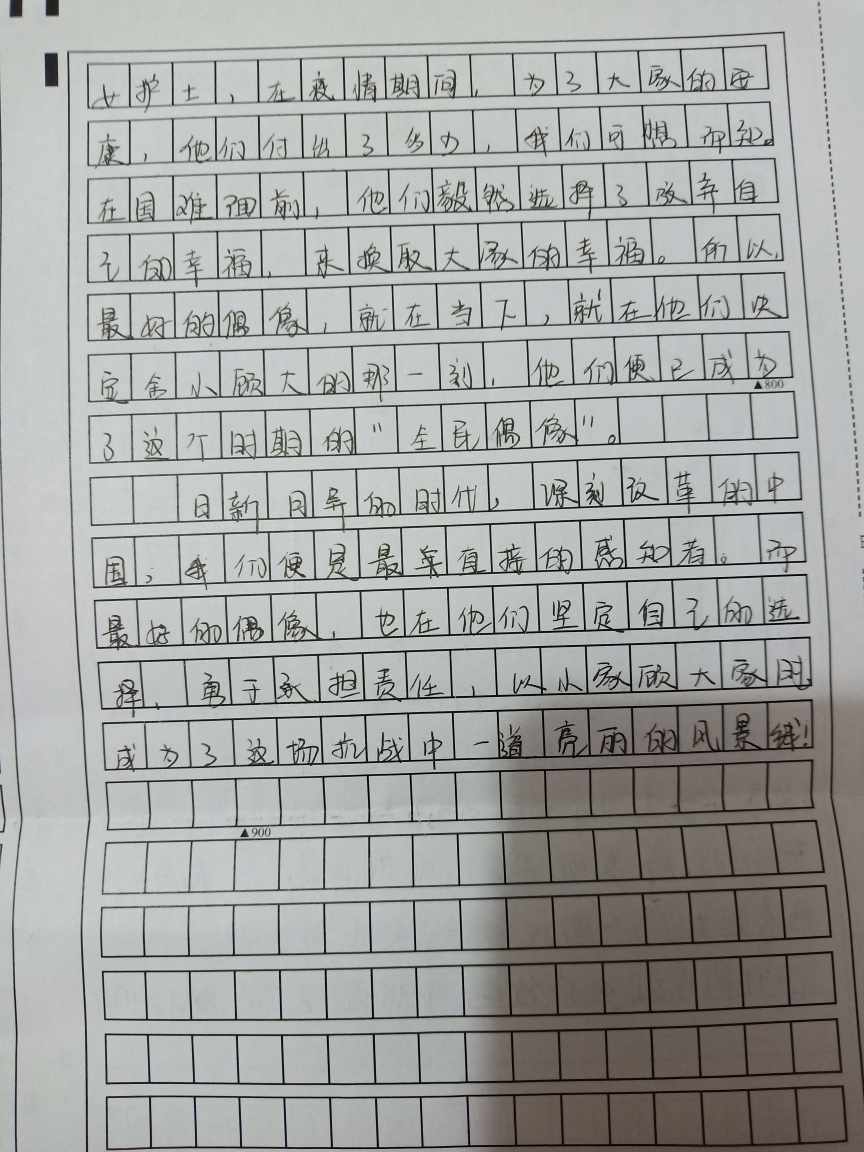 女护士，在疫情期间，为了大家的安
康，他们付出了多少，我们可想而知。
在国难面前，他们毅然选择了放弃自
己的幸福，来换取大家的幸福。所以，
最好的偶像，就在当下，就在他们决
定舍小顾大的那一刻，他们便已成为
▲800
了这个时期的“全民偶像”。
日新月异的时代，深刻改革的中
国，我们便是最为直接的感知者。而
最好的偶像，也在他们坚定自己的选
择，勇于承担责任，以小家顾大家时，
成为了这场抗战中一道亮丽的风景线！
▲900